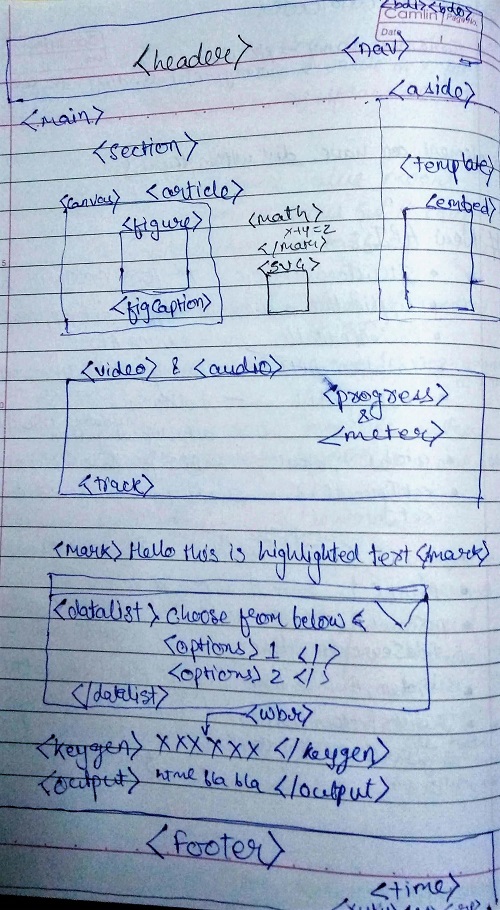 <bdi><bdo>
Camlin Page No.
Date
<header> <nav>
<aside>
<main>
<section>
<template>
<canvas> <article>
<embed>
<figure> <math>
x+y=2
</math>
<SVG>
<figcaption>
<video> & <audio>
<progress>
&
<meter>
<track>
<mark> Hello this is highlighted text </mark>
<datalist> choose from below &
<options> 1 </>
<options> 2 </>
</datalist>
<wbr>
<keygen> XXXXXX </keygen>
<output> bla bla </output>
<footer>
<time>